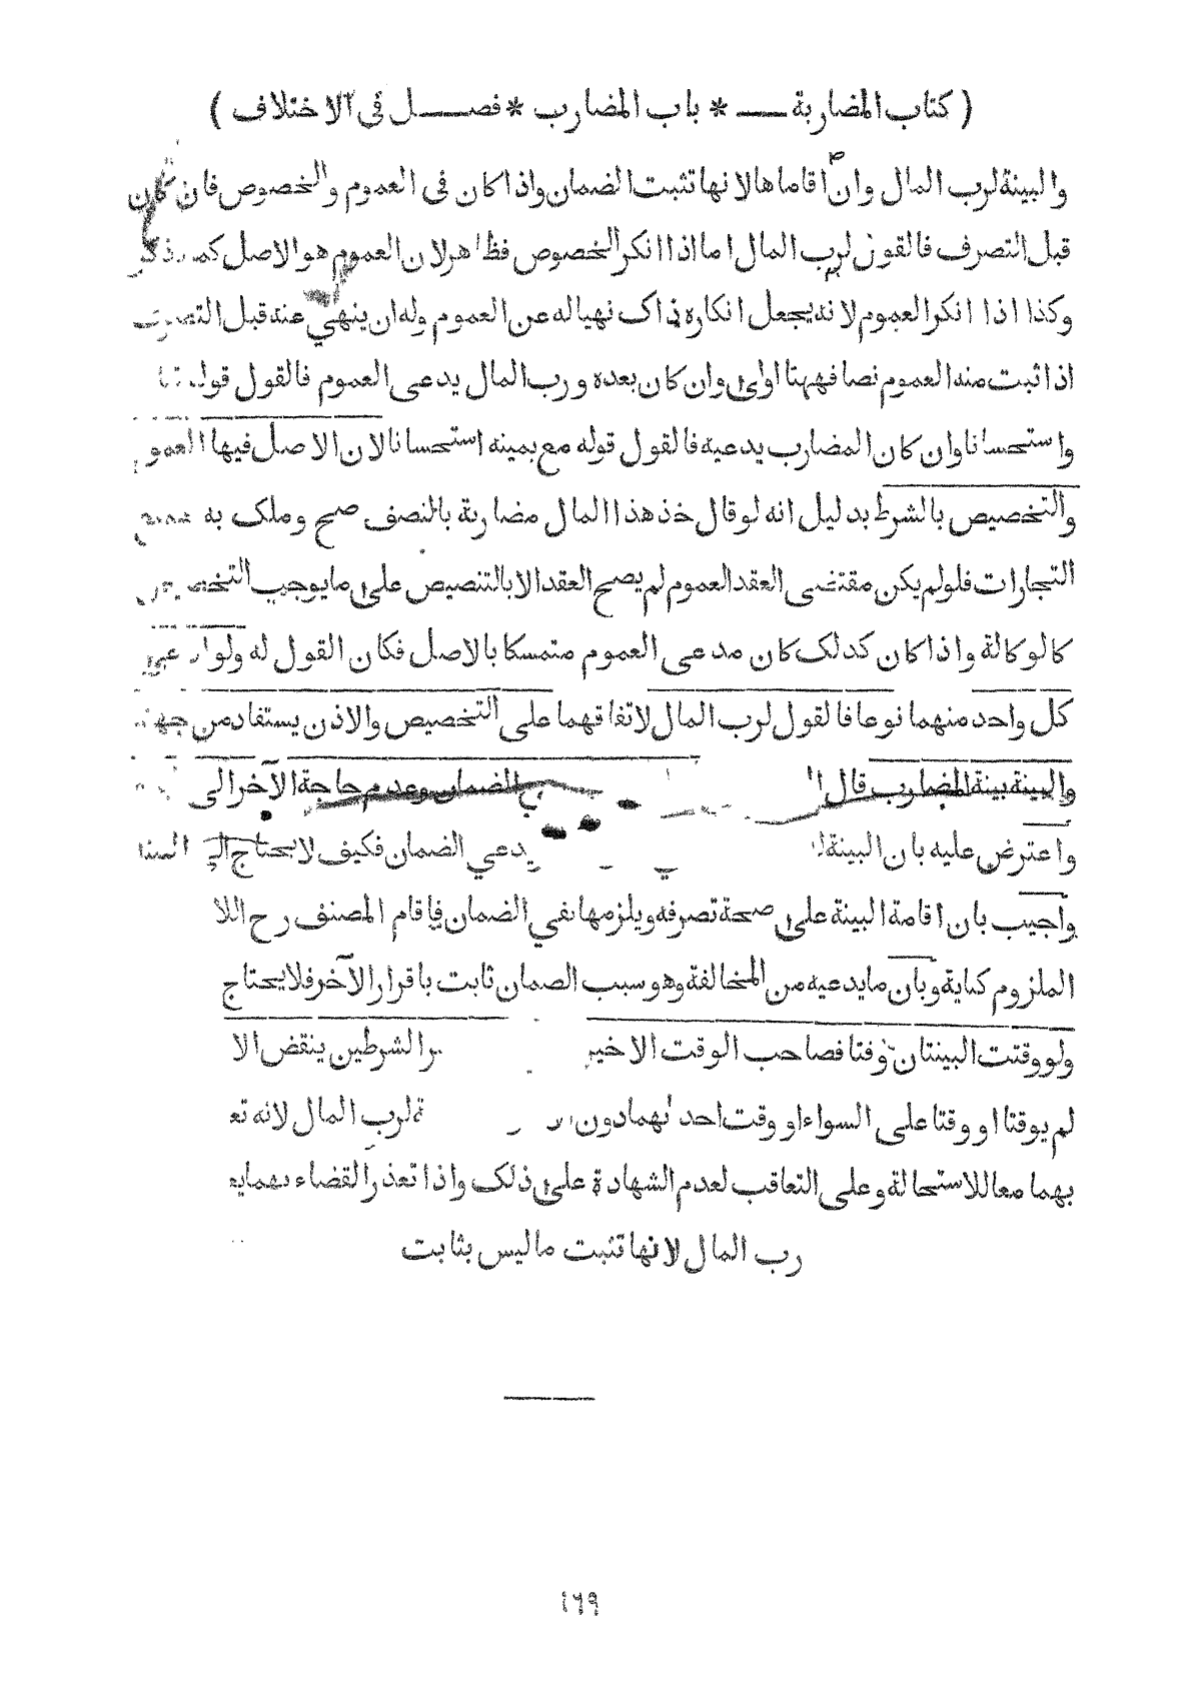 ( كتاب المضاربة — * باب المضارب * فصل فى الاختلاف )
والبينة لرب المال وان اقاماها لانها تثبت الضمان واذا كان فى العموم والخصوص فان كان
قبل التصرف فالقول لرب المال اما اذا انكر الخصوص فظاهر لان العموم هو الاصل
وكذا اذا انكر العموم لانه يجعل انكاره ذاك نهياله عن العموم وله ان ينهى عنه قبل التصرف
اذا ثبت منه العموم نصا فههنا اولى وان كان بعده ورب المال يدعى العموم فالقول قوله
واستحسانا وان كان المضارب يدعيه فالقول قوله مع يمينه استحسانا لان الاصل فيها العموم
والتخصيص بالشرط بدليل انه لوقال خذ هذا المال مضاربة بالنصف صح وملك به
التجارات فلولم يكن مقتضى العقد العموم لم يصح العقد الا بالتنصيص على ما يوجب
كالوكالة واذا كان كذلك كان مدعى العموم متمسكا بالاصل فكان القول له
كل واحد منهما نوعا فالقول لرب المال لاتفاقهما على التخصيص والاذن يستفاد من
والبينة بينة المضارب قال الضمان وعدم حاجة الآخر الى
واعترض عليه بان البينة يدعي الضمان فكيف لا يحتاج
واجيب بان اقامة البينة على صحة تصرفه ويلزمها نفي الضمان فاقام المصنف رح
الملزوم كناية وبان ما يدعيه من المخالفة وهو سبب الضمان ثابت باقرار الآخر فلا يحتاج
ولو وقتت البينتان وقتا فصاحب الوقت الاخير الشرطين ينقض
لم يوقتا او وقتا على السواء او وقت احدٰهما دون لرب المال لانه
بهما معا للاستحالة وعلى التعاقب لعدم الشهادة على ذلك واذا تعذر القضاء بهما
رب المال لانها تثبت ما ليس بثابت
١٦٩